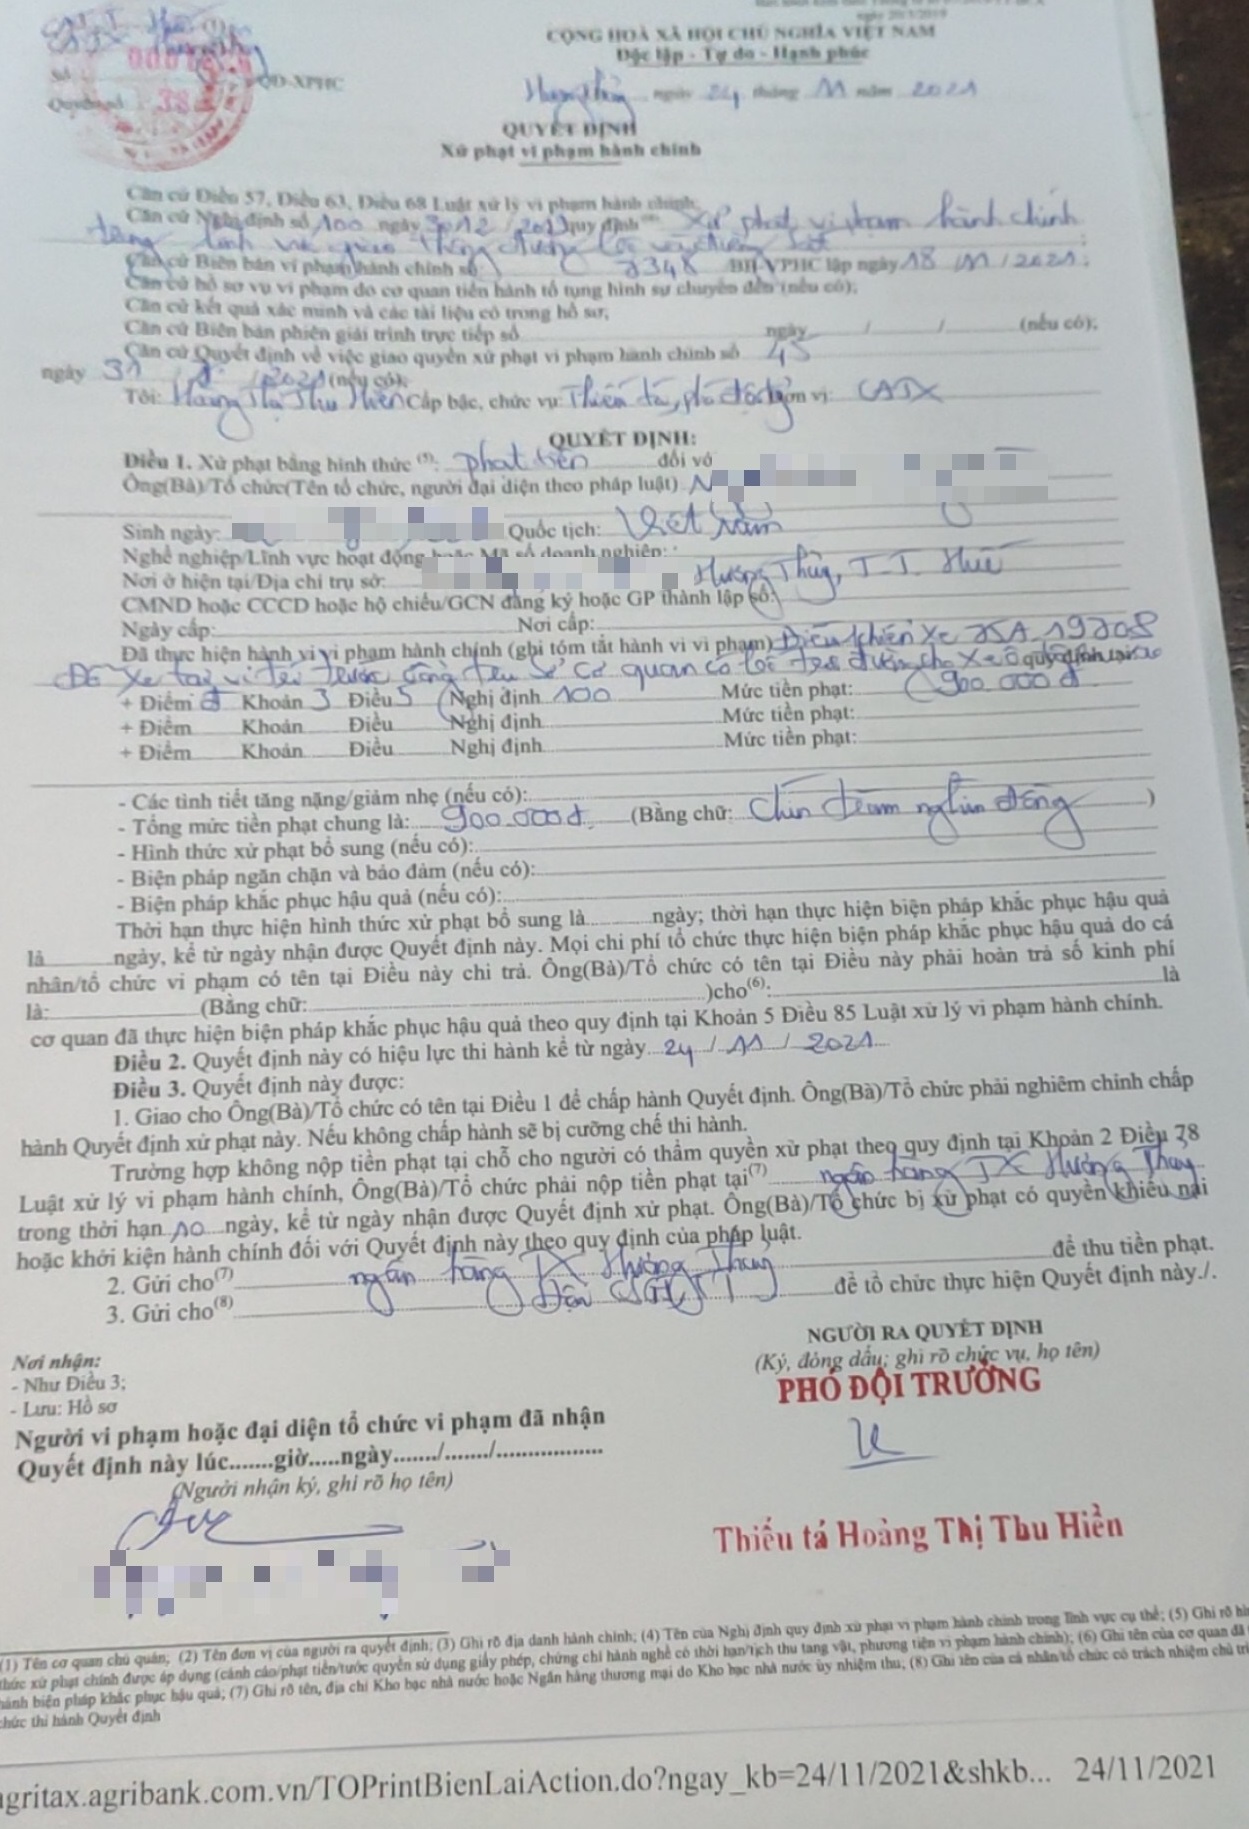 CỘNG HOÀ XÃ HỘI CHỦ NGHĨA VIỆT NAM
Độc lập - Tự do - Hạnh phúc
Số QĐ-XPHC
Quyển số 38
ngày 24 tháng 11 năm 2021
QUYẾT ĐỊNH
Xử phạt vi phạm hành chính
Căn cứ Điều 57, Điều 63, Điều 68 Luật xử lý vi phạm hành chính;
Căn cứ Nghị định số 100 ngày 30/12/2019 quy định (4) Xử phạt vi phạm hành chính
trong lĩnh vực giao thông đường bộ và đường sắt
Căn cứ Biên bản vi phạm hành chính số 2348 /BB-VPHC lập ngày 18/11/2021;
Căn cứ hồ sơ vụ vi phạm do cơ quan tiến hành tố tụng hình sự chuyển đến (nếu có);
Căn cứ kết quả xác minh và các tài liệu có trong hồ sơ;
Căn cứ Biên bản phiên giải trình trực tiếp số ngày / / (nếu có);
Căn cứ Quyết định về việc giao quyền xử phạt vi phạm hành chính số 45
ngày 31 / / 2021 (nếu có);
Tôi: Hoàng Thị Thu Hiền Cấp bậc, chức vụ: Thiếu tá, phó đội trưởng Đơn vị: CATX
QUYẾT ĐỊNH:
Điều 1. Xử phạt bằng hình thức (5): phạt tiền đối vớ
Ông(Bà)/Tổ chức(Tên tổ chức, người đại diện theo pháp luật) N
Sinh ngày: Quốc tịch: Việt Nam
Nghề nghiệp/Lĩnh vực hoạt động hoặc Mã số doanh nghiệp:
Nơi ở hiện tại/Địa chỉ trụ sở: Hương Thủy, T.T. Huế
CMND hoặc CCCD hoặc hộ chiếu/GCN đăng ký hoặc GP thành lập số:
Ngày cấp: Nơi cấp:
Đã thực hiện hành vi vi phạm hành chính (ghi tóm tắt hành vi vi phạm) Điều khiển xe 75A 19208
Đỗ xe tại vị trí trước cổng trụ sở cơ quan có lối đường cho xe ô tô quy định tại
+ Điểm đ Khoản 3 Điều 5 Nghị định 100 Mức tiền phạt: 900.000đ
+ Điểm Khoản Điều Nghị định Mức tiền phạt:
+ Điểm Khoản Điều Nghị định Mức tiền phạt:
- Các tình tiết tăng nặng/giảm nhẹ (nếu có):
- Tổng mức tiền phạt chung là: 900.000đ (Bằng chữ: Chín trăm nghìn đồng )
- Hình thức xử phạt bổ sung (nếu có):
- Biện pháp ngăn chặn và bảo đảm (nếu có):
- Biện pháp khắc phục hậu quả (nếu có):
Thời hạn thực hiện hình thức xử phạt bổ sung là ngày; thời hạn thực hiện biện pháp khắc phục hậu quả
là ngày, kể từ ngày nhận được Quyết định này. Mọi chi phí tổ chức thực hiện biện pháp khắc phục hậu quả do cá
nhân/tổ chức vi phạm có tên tại Điều này chi trả. Ông(Bà)/Tổ chức có tên tại Điều này phải hoàn trả số kinh phí
là: (Bằng chữ: )cho(6): là
cơ quan đã thực hiện biện pháp khắc phục hậu quả theo quy định tại Khoản 5 Điều 85 Luật xử lý vi phạm hành chính.
Điều 2. Quyết định này có hiệu lực thi hành kể từ ngày 24 / 11 / 2021
Điều 3. Quyết định này được:
1. Giao cho Ông(Bà)/Tổ chức có tên tại Điều 1 để chấp hành Quyết định. Ông(Bà)/Tổ chức phải nghiêm chỉnh chấp
hành Quyết định xử phạt này. Nếu không chấp hành sẽ bị cưỡng chế thi hành.
Trường hợp không nộp tiền phạt tại chỗ cho người có thẩm quyền xử phạt theo quy định tại Khoản 2 Điều 78
Luật xử lý vi phạm hành chính, Ông(Bà)/Tổ chức phải nộp tiền phạt tại(7) ngân hàng TX Hương Thủy
trong thời hạn 10 ngày, kể từ ngày nhận được Quyết định xử phạt. Ông(Bà)/Tổ chức bị xử phạt có quyền khiếu nại
hoặc khởi kiện hành chính đối với Quyết định này theo quy định của pháp luật.
2. Gửi cho(7) ngân hàng TX Hương Thủy để thu tiền phạt.
3. Gửi cho(8) Đội CSGT để tổ chức thực hiện Quyết định này./.
Nơi nhận:
- Như Điều 3;
- Lưu: Hồ sơ
NGƯỜI RA QUYẾT ĐỊNH
(Ký, đóng dấu; ghi rõ chức vụ, họ tên)
PHÓ ĐỘI TRƯỞNG
Người vi phạm hoặc đại diện tổ chức vi phạm đã nhận
Quyết định này lúc.......giờ.....ngày......./......./.................
(Người nhận ký, ghi rõ họ tên)
Thiếu tá Hoàng Thị Thu Hiền
(1) Tên cơ quan chủ quản; (2) Tên đơn vị của người ra quyết định; (3) Ghi rõ địa danh hành chính; (4) Tên của Nghị định quy định xử phạt vi phạm hành chính trong lĩnh vực cụ thể; (5) Ghi rõ hì
thức xử phạt chính được áp dụng (cảnh cáo/phạt tiền/tước quyền sử dụng giấy phép, chứng chỉ hành nghề có thời hạn/tịch thu tang vật, phương tiện vi phạm hành chính); (6) Ghi tên của cơ quan đã
hành biện pháp khắc phục hậu quả; (7) Ghi rõ tên, địa chỉ Kho bạc nhà nước hoặc Ngân hàng thương mại do Kho bạc nhà nước ủy nhiệm thu; (8) Ghi tên của cá nhân/tổ chức có trách nhiệm chủ trì
chức thi hành Quyết định
agritax.agribank.com.vn/TOPrintBienLaiAction.do?ngay_kb=24/11/2021&shkb... 24/11/2021